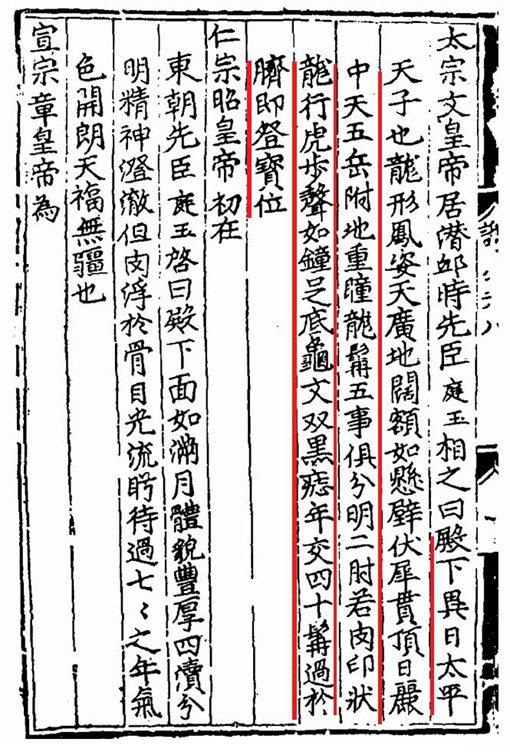 太宗文皇帝居潜邸時先臣庭玉相之曰殿下異日太平
天子也龍形鳳姿天廣地闊額如懸壁伏犀貫頂日麗
中天五岳附地重瞳龍髯五事俱分明二肘若肉印狀
龍行虎步聲如鐘足底龜文双黑痣年交四十髯過於
臍即登寶位
仁宗昭皇帝初在
東朝先臣庭玉啓曰殿下面如滿月體貌豐厚四瀆分
明精神澄澈但肉浮於骨目光流眄待過七〻之年氣
色開朗天福無疆也
宣宗章皇帝為